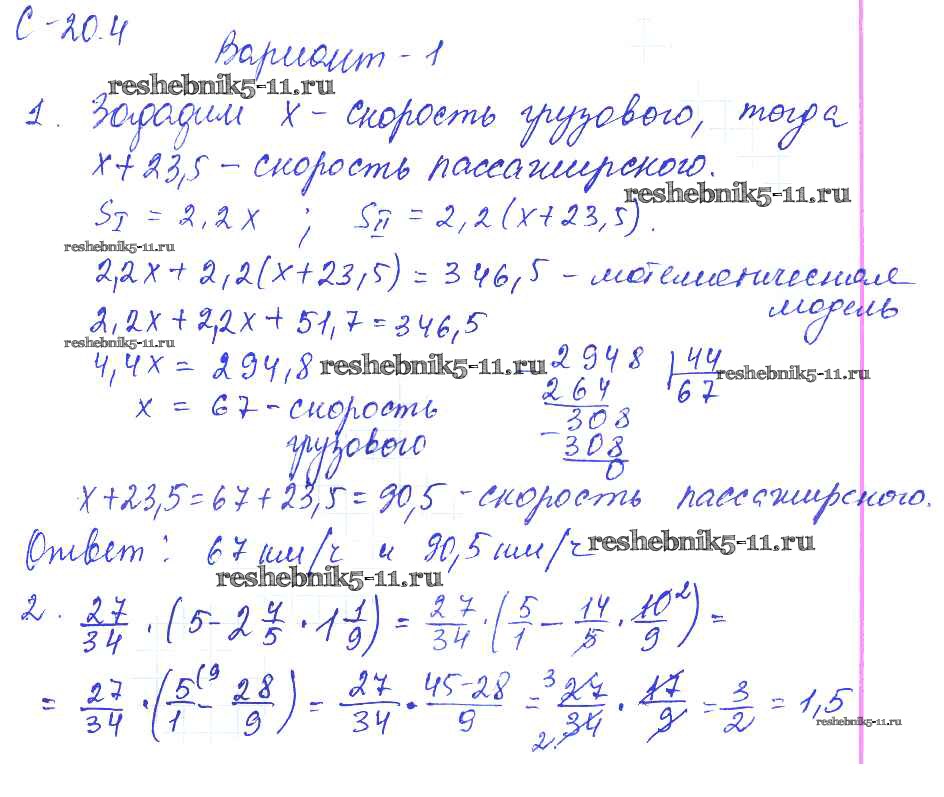 С-20.4
Вариант-1
reshebnik5-11.ru
1. Зададим x - скорость грузового, тогда
x+23,5 - скорость пассажирского.
reshebnik5-11.ru
S_I = 2,2x ; S_II = 2,2(x+23,5).
reshebnik5-11.ru
2,2x + 2,2(x+23,5) = 346,5 - математическая
модель
2,2x + 2,2x + 51,7 = 346,5
reshebnik5-11.ru
4,4x = 294,8 reshebnik5-11.ru
x = 67 - скорость
грузового
2948 | 44
264 67
reshebnik5-11.ru
308
- 308
0
x+23,5 = 67+23,5 = 90,5 - скорость пассажирского.
Ответ: 67 км/ч и 90,5 км/ч
reshebnik5-11.ru
reshebnik5-11.ru
2. 27/34 · (5 - 2 4/5 · 1 1/9) = 27/34 · (5/1 - 14/5 · 10/9) =
= 27/34 · (5/1 - 28/9) = 27/34 · 45-28/9 = 27/34 · 17/9 = 3/2 = 1,5
reshebnik5-11.ru